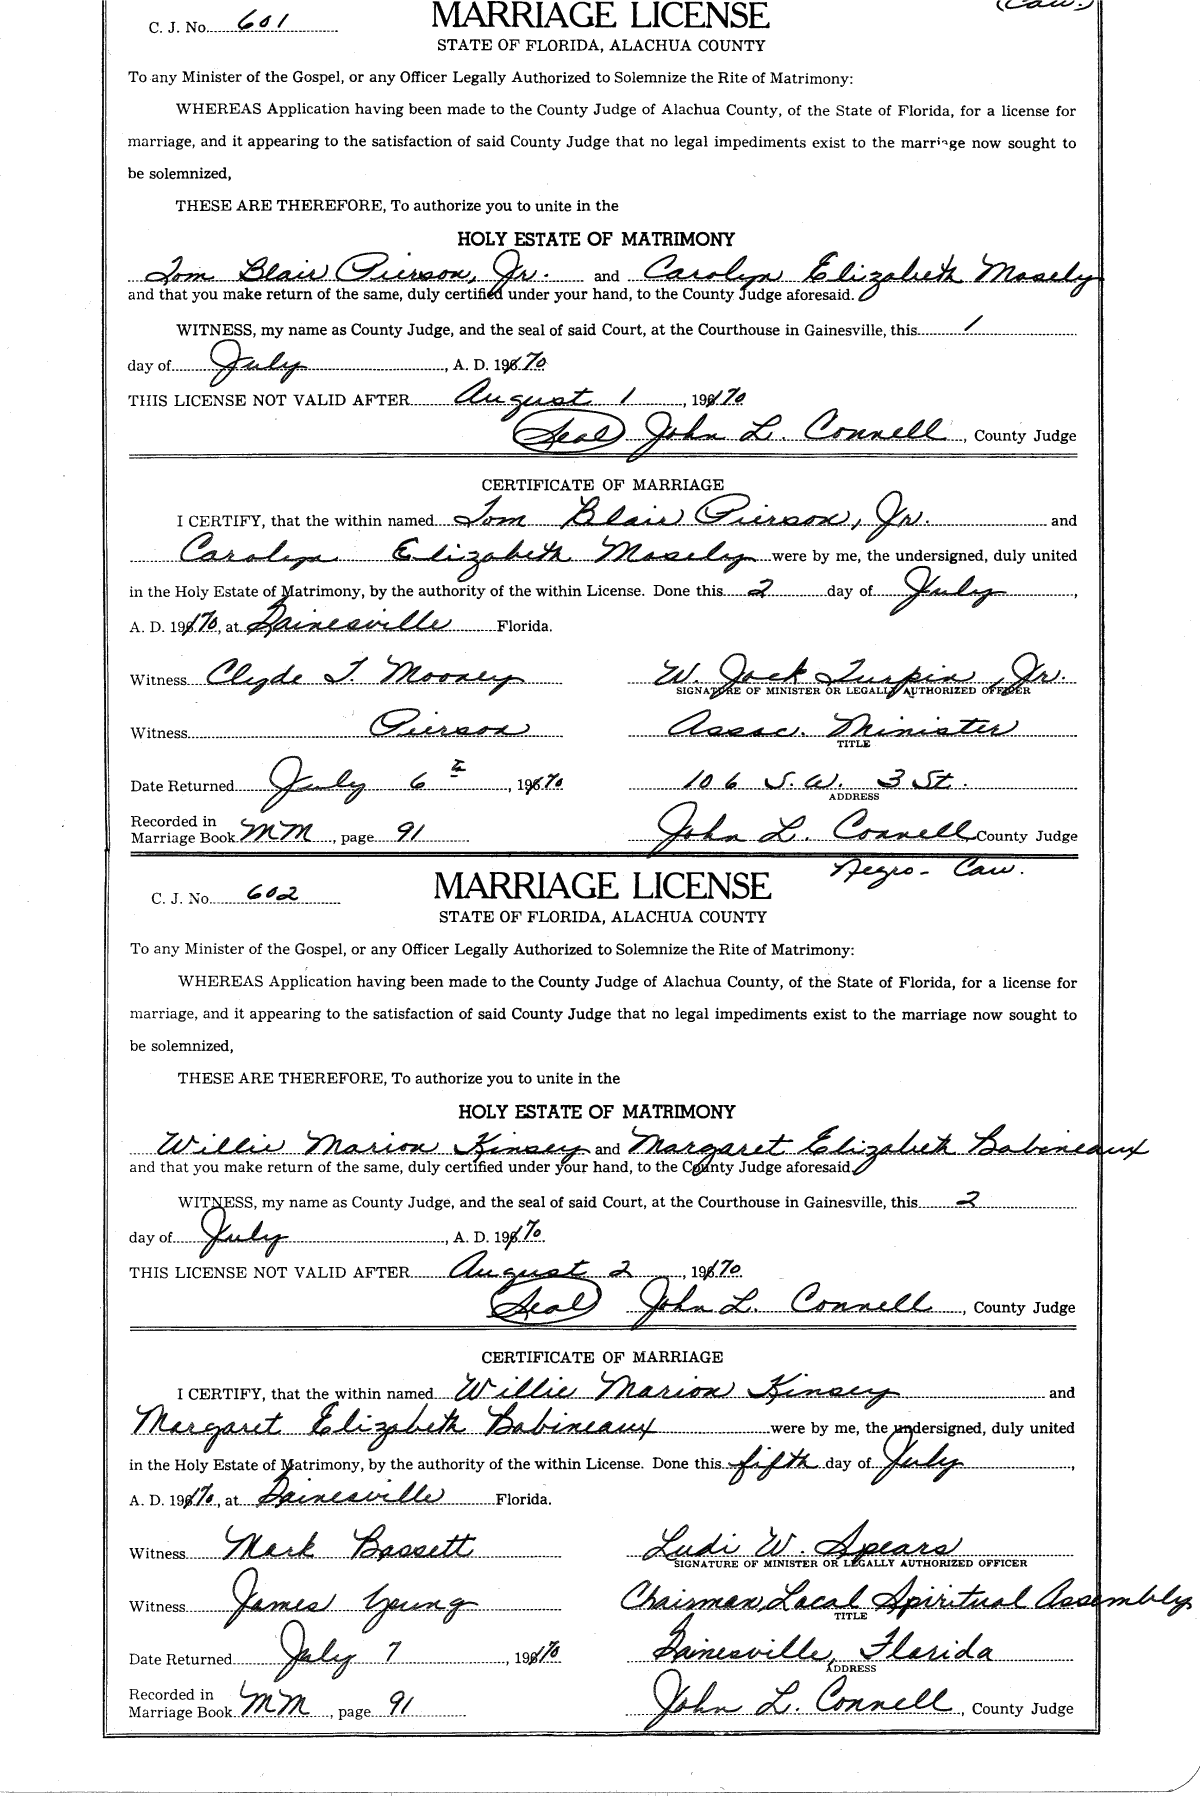 (Cau.)
C. J. No. 601
MARRIAGE LICENSE
STATE OF FLORIDA, ALACHUA COUNTY
To any Minister of the Gospel, or any Officer Legally Authorized to Solemnize the Rite of Matrimony:
WHEREAS Application having been made to the County Judge of Alachua County, of the State of Florida, for a license for
marriage, and it appearing to the satisfaction of said County Judge that no legal impediments exist to the marriage now sought to
be solemnized,
THESE ARE THEREFORE, To authorize you to unite in the
HOLY ESTATE OF MATRIMONY
Tom Blair Pierson, Jr. and Carolyn Elizabeth Mosely
and that you make return of the same, duly certified under your hand, to the County Judge aforesaid.
WITNESS, my name as County Judge, and the seal of said Court, at the Courthouse in Gainesville, this 1
day of July, A. D. 1970
THIS LICENSE NOT VALID AFTER August 1, 1970
(Seal) John L. Connell, County Judge
CERTIFICATE OF MARRIAGE
I CERTIFY, that the within named Tom Blair Pierson, Jr. and
Carolyn Elizabeth Mosely were by me, the undersigned, duly united
in the Holy Estate of Matrimony, by the authority of the within License. Done this 2 day of July,
A. D. 1970, at Gainesville Florida.
Witness Clyde T. Mooney W. Jack Turpin, Jr.
SIGNATURE OF MINISTER OR LEGALLY AUTHORIZED OFFICER
Witness Pierson Assoc. Minister
TITLE
Date Returned July 6th, 1970 106 S.W. 3 St.
ADDRESS
Recorded in
Marriage Book MM, page 91 John L. Connell, County Judge
Negro - Cau.
C. J. No. 602
MARRIAGE LICENSE
STATE OF FLORIDA, ALACHUA COUNTY
To any Minister of the Gospel, or any Officer Legally Authorized to Solemnize the Rite of Matrimony:
WHEREAS Application having been made to the County Judge of Alachua County, of the State of Florida, for a license for
marriage, and it appearing to the satisfaction of said County Judge that no legal impediments exist to the marriage now sought to
be solemnized,
THESE ARE THEREFORE, To authorize you to unite in the
HOLY ESTATE OF MATRIMONY
Willie Marion Kinsey and Margaret Elizabeth Babineaux
and that you make return of the same, duly certified under your hand, to the County Judge aforesaid.
WITNESS, my name as County Judge, and the seal of said Court, at the Courthouse in Gainesville, this 2
day of July, A. D. 1970
THIS LICENSE NOT VALID AFTER August 2, 1970
(Seal) John L. Connell, County Judge
CERTIFICATE OF MARRIAGE
I CERTIFY, that the within named Willie Marion Kinsey and
Margaret Elizabeth Babineaux were by me, the undersigned, duly united
in the Holy Estate of Matrimony, by the authority of the within License. Done this fifth day of July,
A. D. 1970, at Gainesville Florida.
Witness Mark Bassett Ludi W. Spears
SIGNATURE OF MINISTER OR LEGALLY AUTHORIZED OFFICER
Witness James Young Chairman, Local Spiritual Assembly
TITLE
Date Returned July 7, 1970 Gainesville, Florida
ADDRESS
Recorded in
Marriage Book MM, page 91 John L. Connell, County Judge